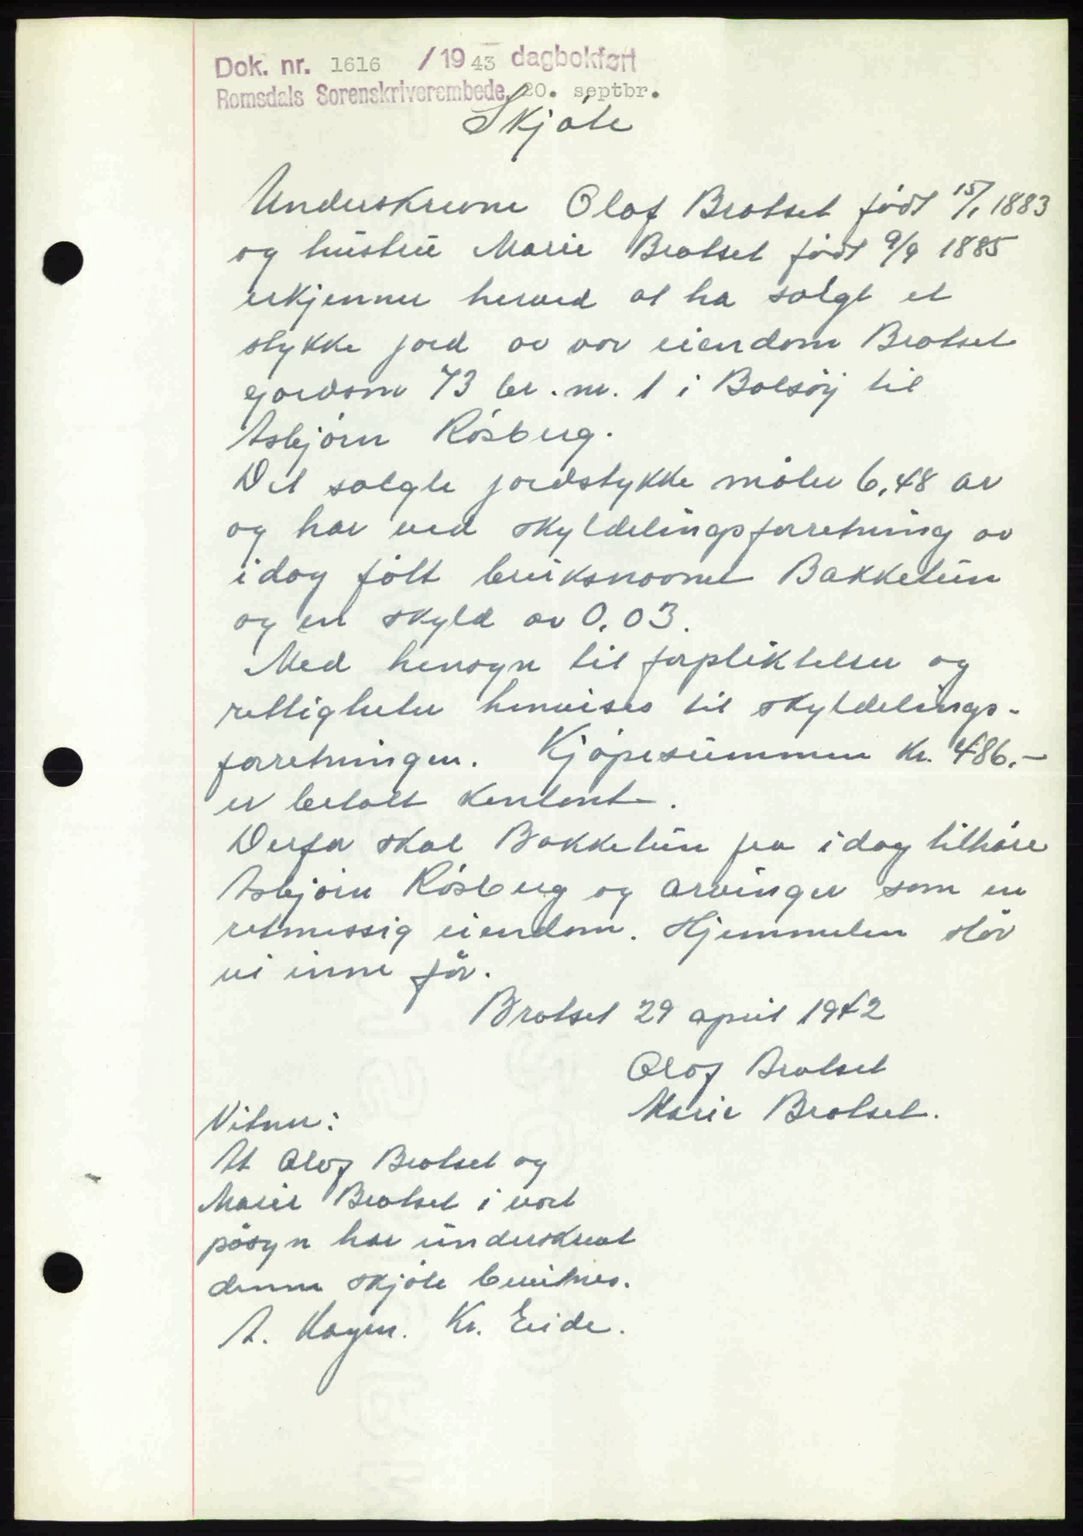 Dok. nr. 1616 / 19 43 dagbokført
Romsdals Sorenskriverembede, 20. septbr.
Skjøte
Underskrevne Olaf Brotset født 15/1 1883
og hustru Marie Brotset født 9/9 1885
erkjenner herved at ha solgt et
stykke jord av vor eiendom Brotset
gardsnr 73 br. nr. 1 i Bolsøy til
Asbjørn Røsberg.
Det solgte jordstykke måler 6,48 ar
og har ved skyldelingsforretning av
idag fått bruksnavnet Bakketun
og en skyld av 0,03.
Med hensyn til forpliktelser og
rettigheter henvises til skyldelings-
forretningen. Kjøpesummen kr. 486.-
er betalt kontant.
Derfor skal Bakketun fra idag tilhøre
Asbjørn Røsberg og arvinger som en
retmessig eiendom. Hjemmelen står
vi inne for.
Brotset 29 april 1942
Olaf Brotset
Marie Brotset.
Vitner:
At Olof Brotset og
Marie Brotset i vort
påsyn har underskrevet
denne skjøte bevitnes.
A. Hagen. Kr. Eide.